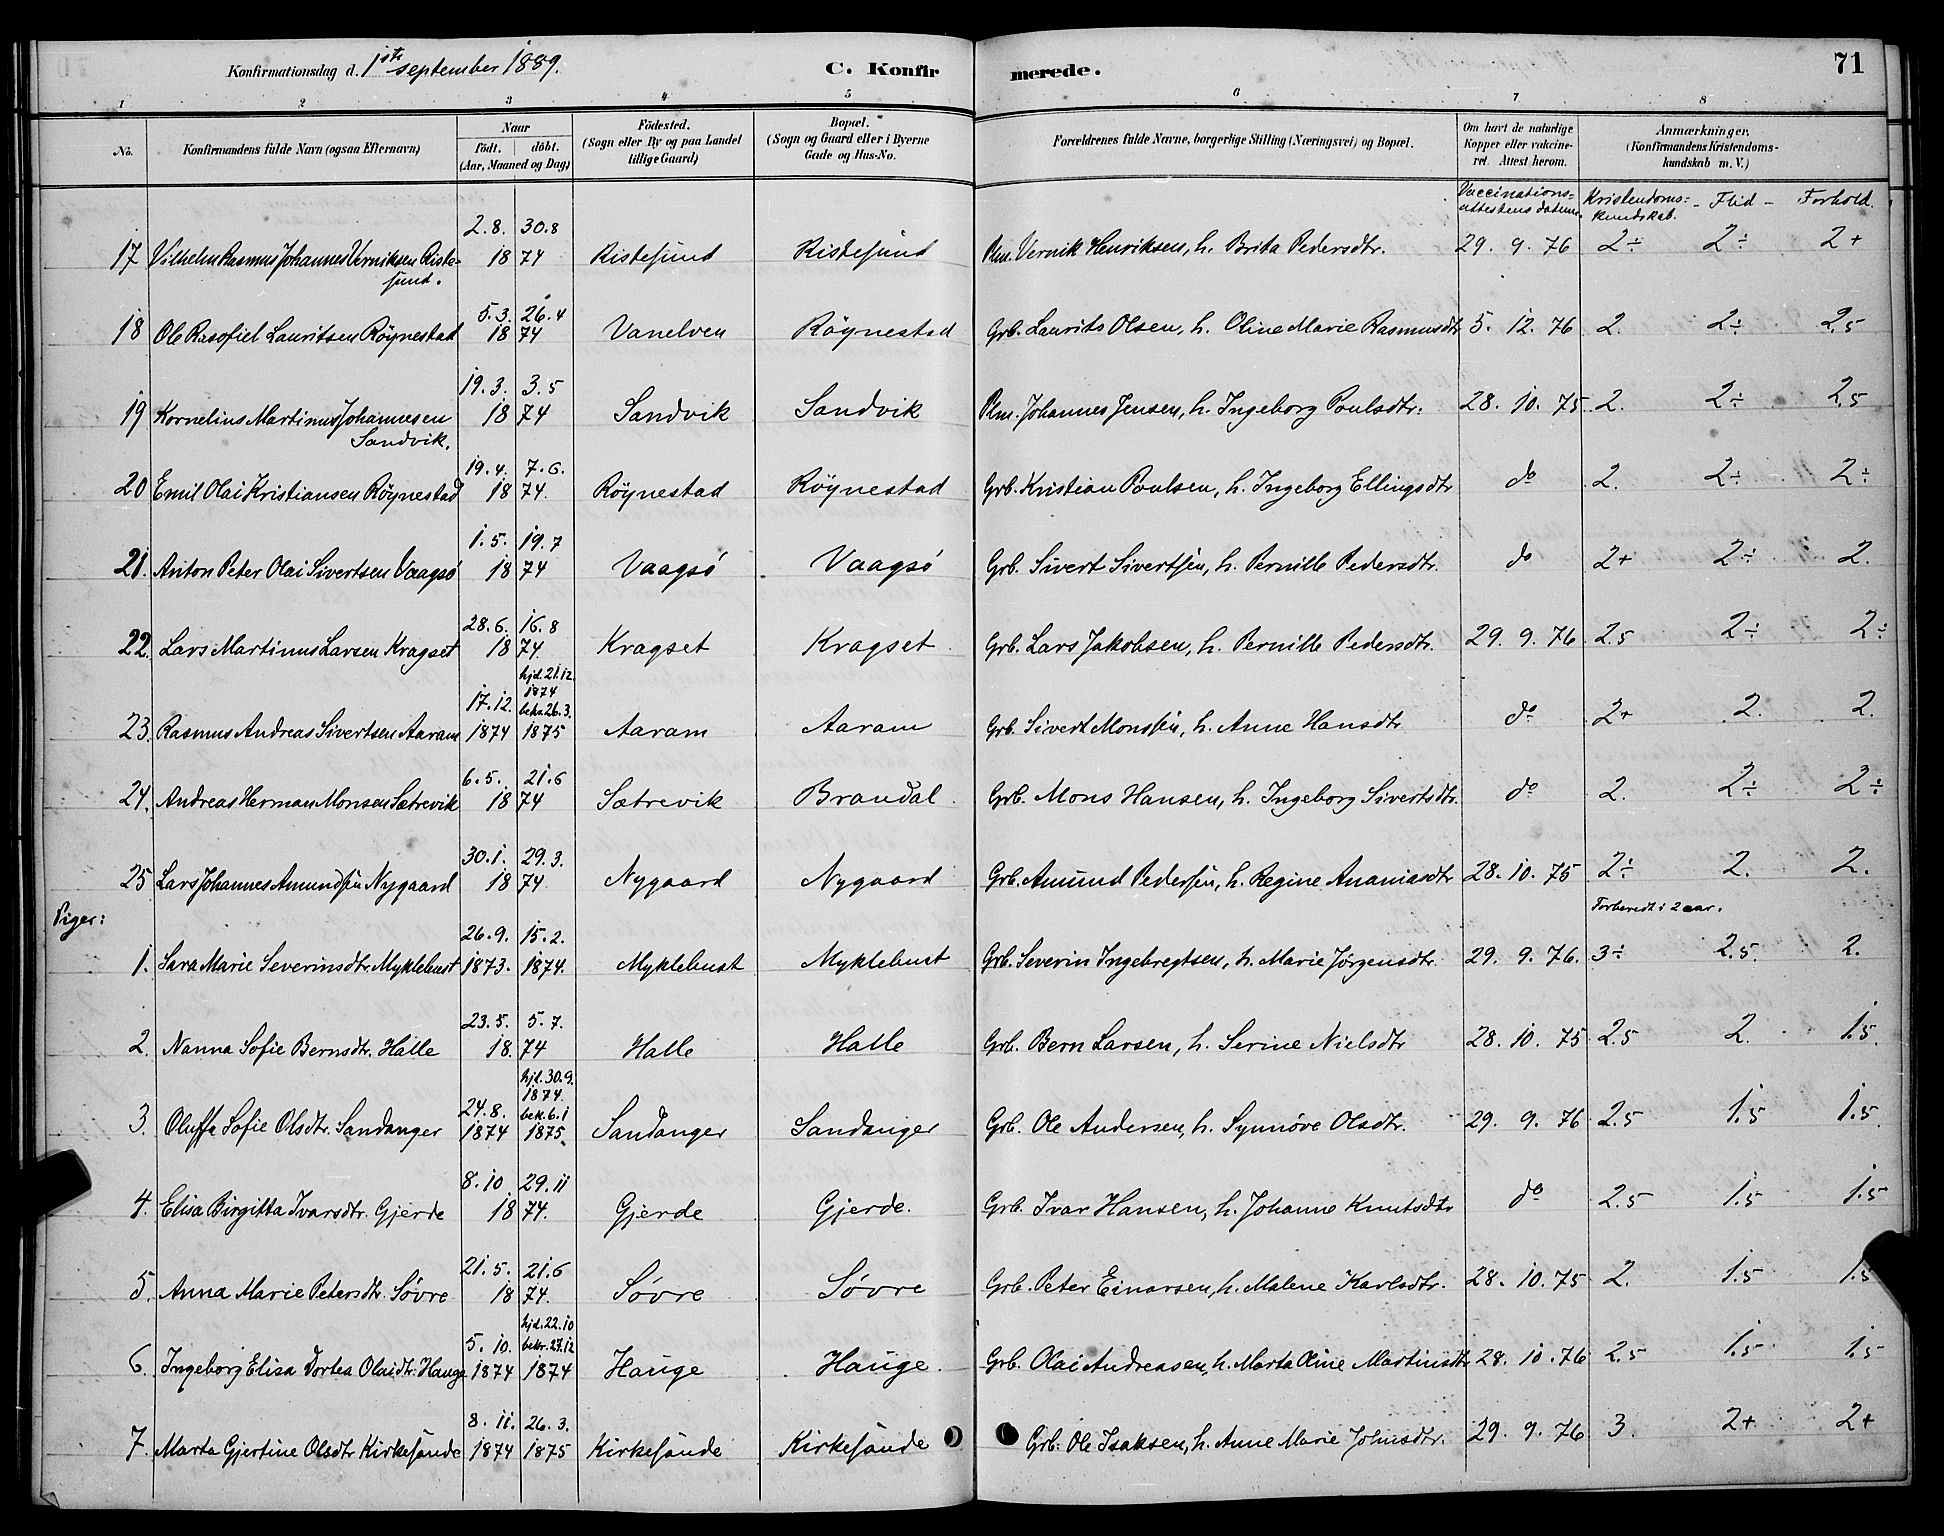 Konfirmationsdag d. 1ste september 1889. C. Konfir merede. 71
1 2 3 4 5 6 7 8
No. Konfirmandens fulde Navn (ogsaa Efternavn) Naar födt. döbt. (Aar, Maaned og Dag) Födested. (Sogn eller By og paa Landet tillige Gaard) Bopæl. (Sogn og Gaard eller i Byerne Gade og Hus-No. Forældrenes fulde Navne, borgerlige Stilling (Næringsvei) og Bopæl. Om havt de naturlige Kopper eller vaccineret. Attest herom. Anmærkninger. (Konfirmandens Kristendomskundskab m. V.)
Vaccinations-attestens datum. Kristendoms-kundskab. - Flid - Forhold.
2.8. 30.8
17 Vilhelm Rasmus Johannes Verniksen Riste- 18 74 Ristesund Ristesund Plm. Vernik Henriksen, h. Brita Pedersdtr. 29. 9. 76 2÷ 2÷ 2+
sund.
5.3. 26.4
18 Ole Rasofiel Lauritsen Röynestad 18 74 Vanelven Röynestad Grb. Laurits Olsen, h. Oline Marie Rasmusdtr 5. 12. 76 2. 2÷ 2.5
19.3. 3.5
19 Kornelius Martinus Johannesen 18 74 Sandvik Sandvik Plm. Johannes Jensen, h. Ingeborg Poulsdtr. 28. 10. 75 2. 2÷ 2.5
Sandvik.
19.4. 7.6.
20 Emil Olai Kristiansen Röynestad 18 74. Röynestad Röynestad Grb. Kristian Poulsen, h. Ingeborg Ellingsdtr do 2. 2÷ 2÷
1.5. 19.7
21. Anton Peter Olai Sivertsen Vaagsö 18 74 Vaagsö Vaagsö Grb. Sivert Sivertsen, h. Pernille Pedersdtr. do 2+ 2÷ 2.
28.6. 16.8
22. Lars Martinus Larsen Kragset 18 74. Kragset Kragset Grb. Lars Jakobsen, h. Pernille Pedersdtr. 29. 9. 76 2.5 2÷ 2÷
hjd. 21.12.
1874
17.12. bekr. 26.3.
23. Rasmus Andreas Sivertsen Aaram 1874 1875 Aaram Aaram Grb. Sivert Monsen, h. Anne Hansdtr do 2+ 2. 2.
6.5. 21.6
24. Andreas Herman Monsen Sætrevik 18 74 Sætrevik Brandal Grb. Mons Hansen, h. Ingeborg Sivertsdtr. do 2. 2÷ 2÷
30.1. 29.3.
25 Lars Johannes Amundsen Nygaard 18 74. Nygaard Nygaard Grb. Amund Pedersen, h. Regine Ananiasdtr 28. 10. 75 2÷ 2. 2.
Piger: Forberedt i 2 aar.
26.9. 15.2.
1. Sara Marie Severinsdtr. Myklebust 1873. 1874. Myklebust Myklebust Grb. Severin Ingebregtsen, h. Marie Jørgensdtr. 29. 9. 76. 3÷ 2.5. 2.
23.5. 5.7.
2. Nanna Sofie Bernsdtr. Halle 18. 74 Halle Halle Grb. Bern Larsen, h. Serine Nielsdtr 28. 10. 75 2.5 2. 1.5.
hjd. 30.9.
1874.
24.8. bek. 6.1
3. Oluffa Sofie Olsdtr. Sandanger 1874 1875. Sandanger Sandanger Grb. Ole Andersen, h. Synnøve Olsdtr. 29. 9. 76 2.5 1.5 1.5.
8.10 29.11
4. Elisa Birgitta Ivarsdtr. Gjerde 18 74. Gjerde Gjerde. Grb. Ivar Hansen, h. Johanne Knutsdtr do 2.5 1.5 1.5
21.5. 21.6
5. Anna Marie Petersdtr. Søvre 18 74. Søvre Søvre Grb. Peter Einarsen, h. Malene Karlsdtr. 28. 10. 75 2. 1.5 1.5
hjd. 22.10
5.10. bekr. 27.12
6. Ingeborg Elisa Dortea Olaidtr. Hauge 1874 1874 Hauge Hauge. Grb. Olai Andreasen, h. Marta Oline Martinsdtr 28. 10. 76 2.5 1.5 1.5
8.11. 26.3.
7. Marta Gjertine Olsdtr Kirkesunde 1874 1875 Kirkesunde Kirkesunde Grb. Ole Isaksen, h. Anne Marie Johnsdtr. 29. 9. 76 3. 2+ 2+